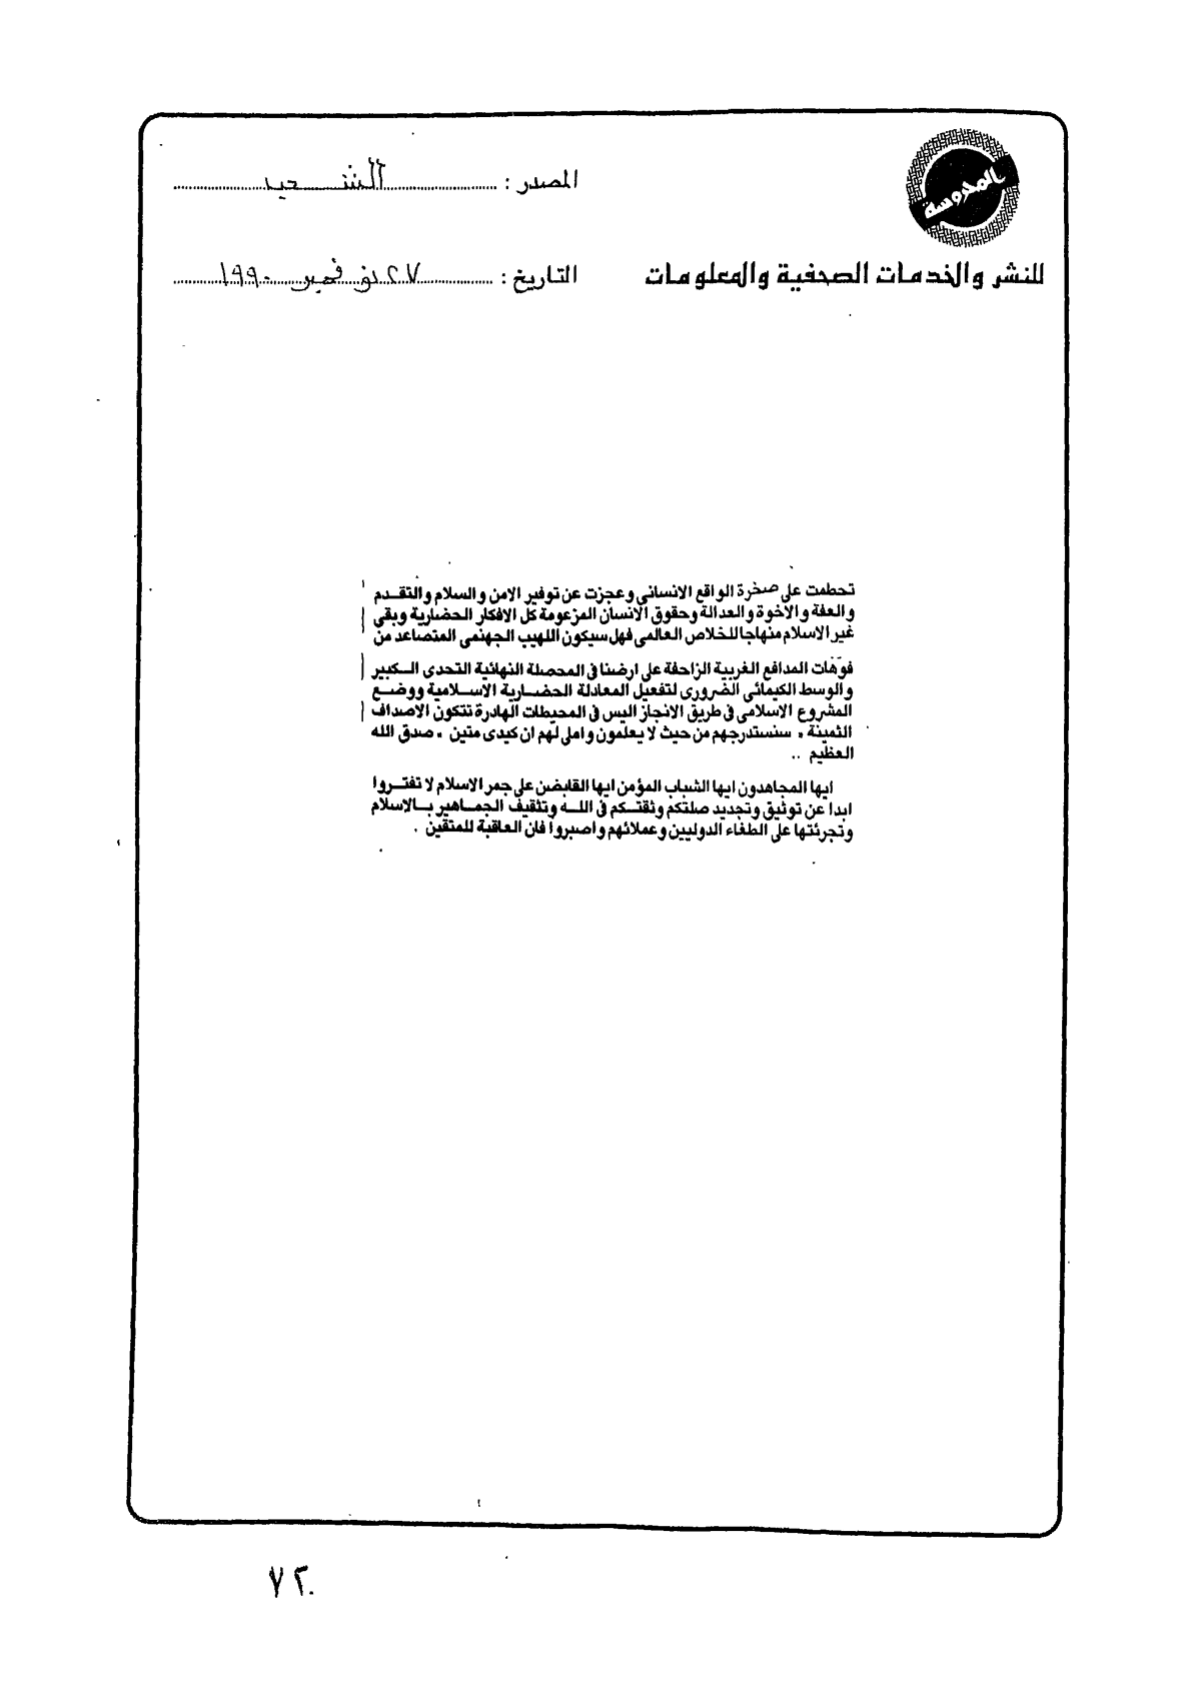 المحروسة
للنشر والخدمات الصحفية والمعلومات
المصدر : الشهيد
التاريخ : ٢٧ نوفمبر ١٩٩٠
تحطمت على صخرة الواقع الانسانى وعجزت عن توفير الامن والسلام والتقدم
والعفة والاخوة والعدالة وحقوق الانسان المزعومة كل الافكار الحضارية وبقى
غير الاسلام منهاجا للخلاص العالمى فهل سيكون اللهيب الجهنمى المتصاعد من
فوهات المدافع الغربية الزاحفة على ارضنا فى المحصلة النهائية التحدى الكبير
والوسط الكيمائى الضرورى لتفعيل المعادلة الحضارية الاسلامية ووضع
المشروع الاسلامى فى طريق الانجاز اليس فى المحيطات الهادرة تتكون الاصداف
الثمينة . سنستدرجهم من حيث لا يعلمون واملى لهم ان كيدى متين . صدق الله
العظيم ..
ايها المجاهدون ايها الشباب المؤمن ايها القابضن على جمر الاسلام لا تفتروا
ابدا عن توثيق وتجديد صلتكم وثقتكم فى الله وتثقيف الجماهير بالاسلام
وتجرئتها على الطغاء الدوليين وعملائهم واصبروا فان العاقبة للمتقين .
٧٢٠